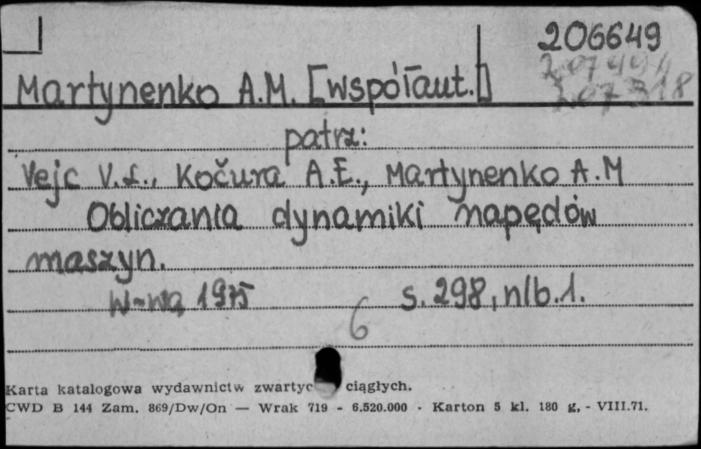 206649
Martynenko A.M. [współaut.]
207318
patrz:
Vejc V.L., Kočura A.E., Martynenko A.M
Obliczania dynamiki napędów
maszyn.
W-wa 1975 s. 298, nlb. 1.
6
Karta katalogowa wydawnictw ciągłych.
CWD B 144 Zam. 869/Dw/On — Wrak 719 - 6.520.000 - Karton 5 kl. 180 g. - VIII.71.